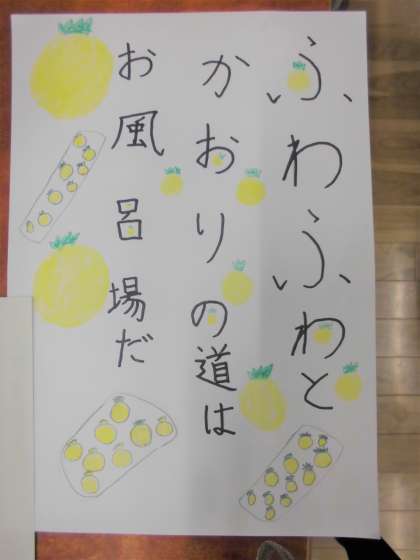 ふわふわと
かおりの道は
お風呂場だ